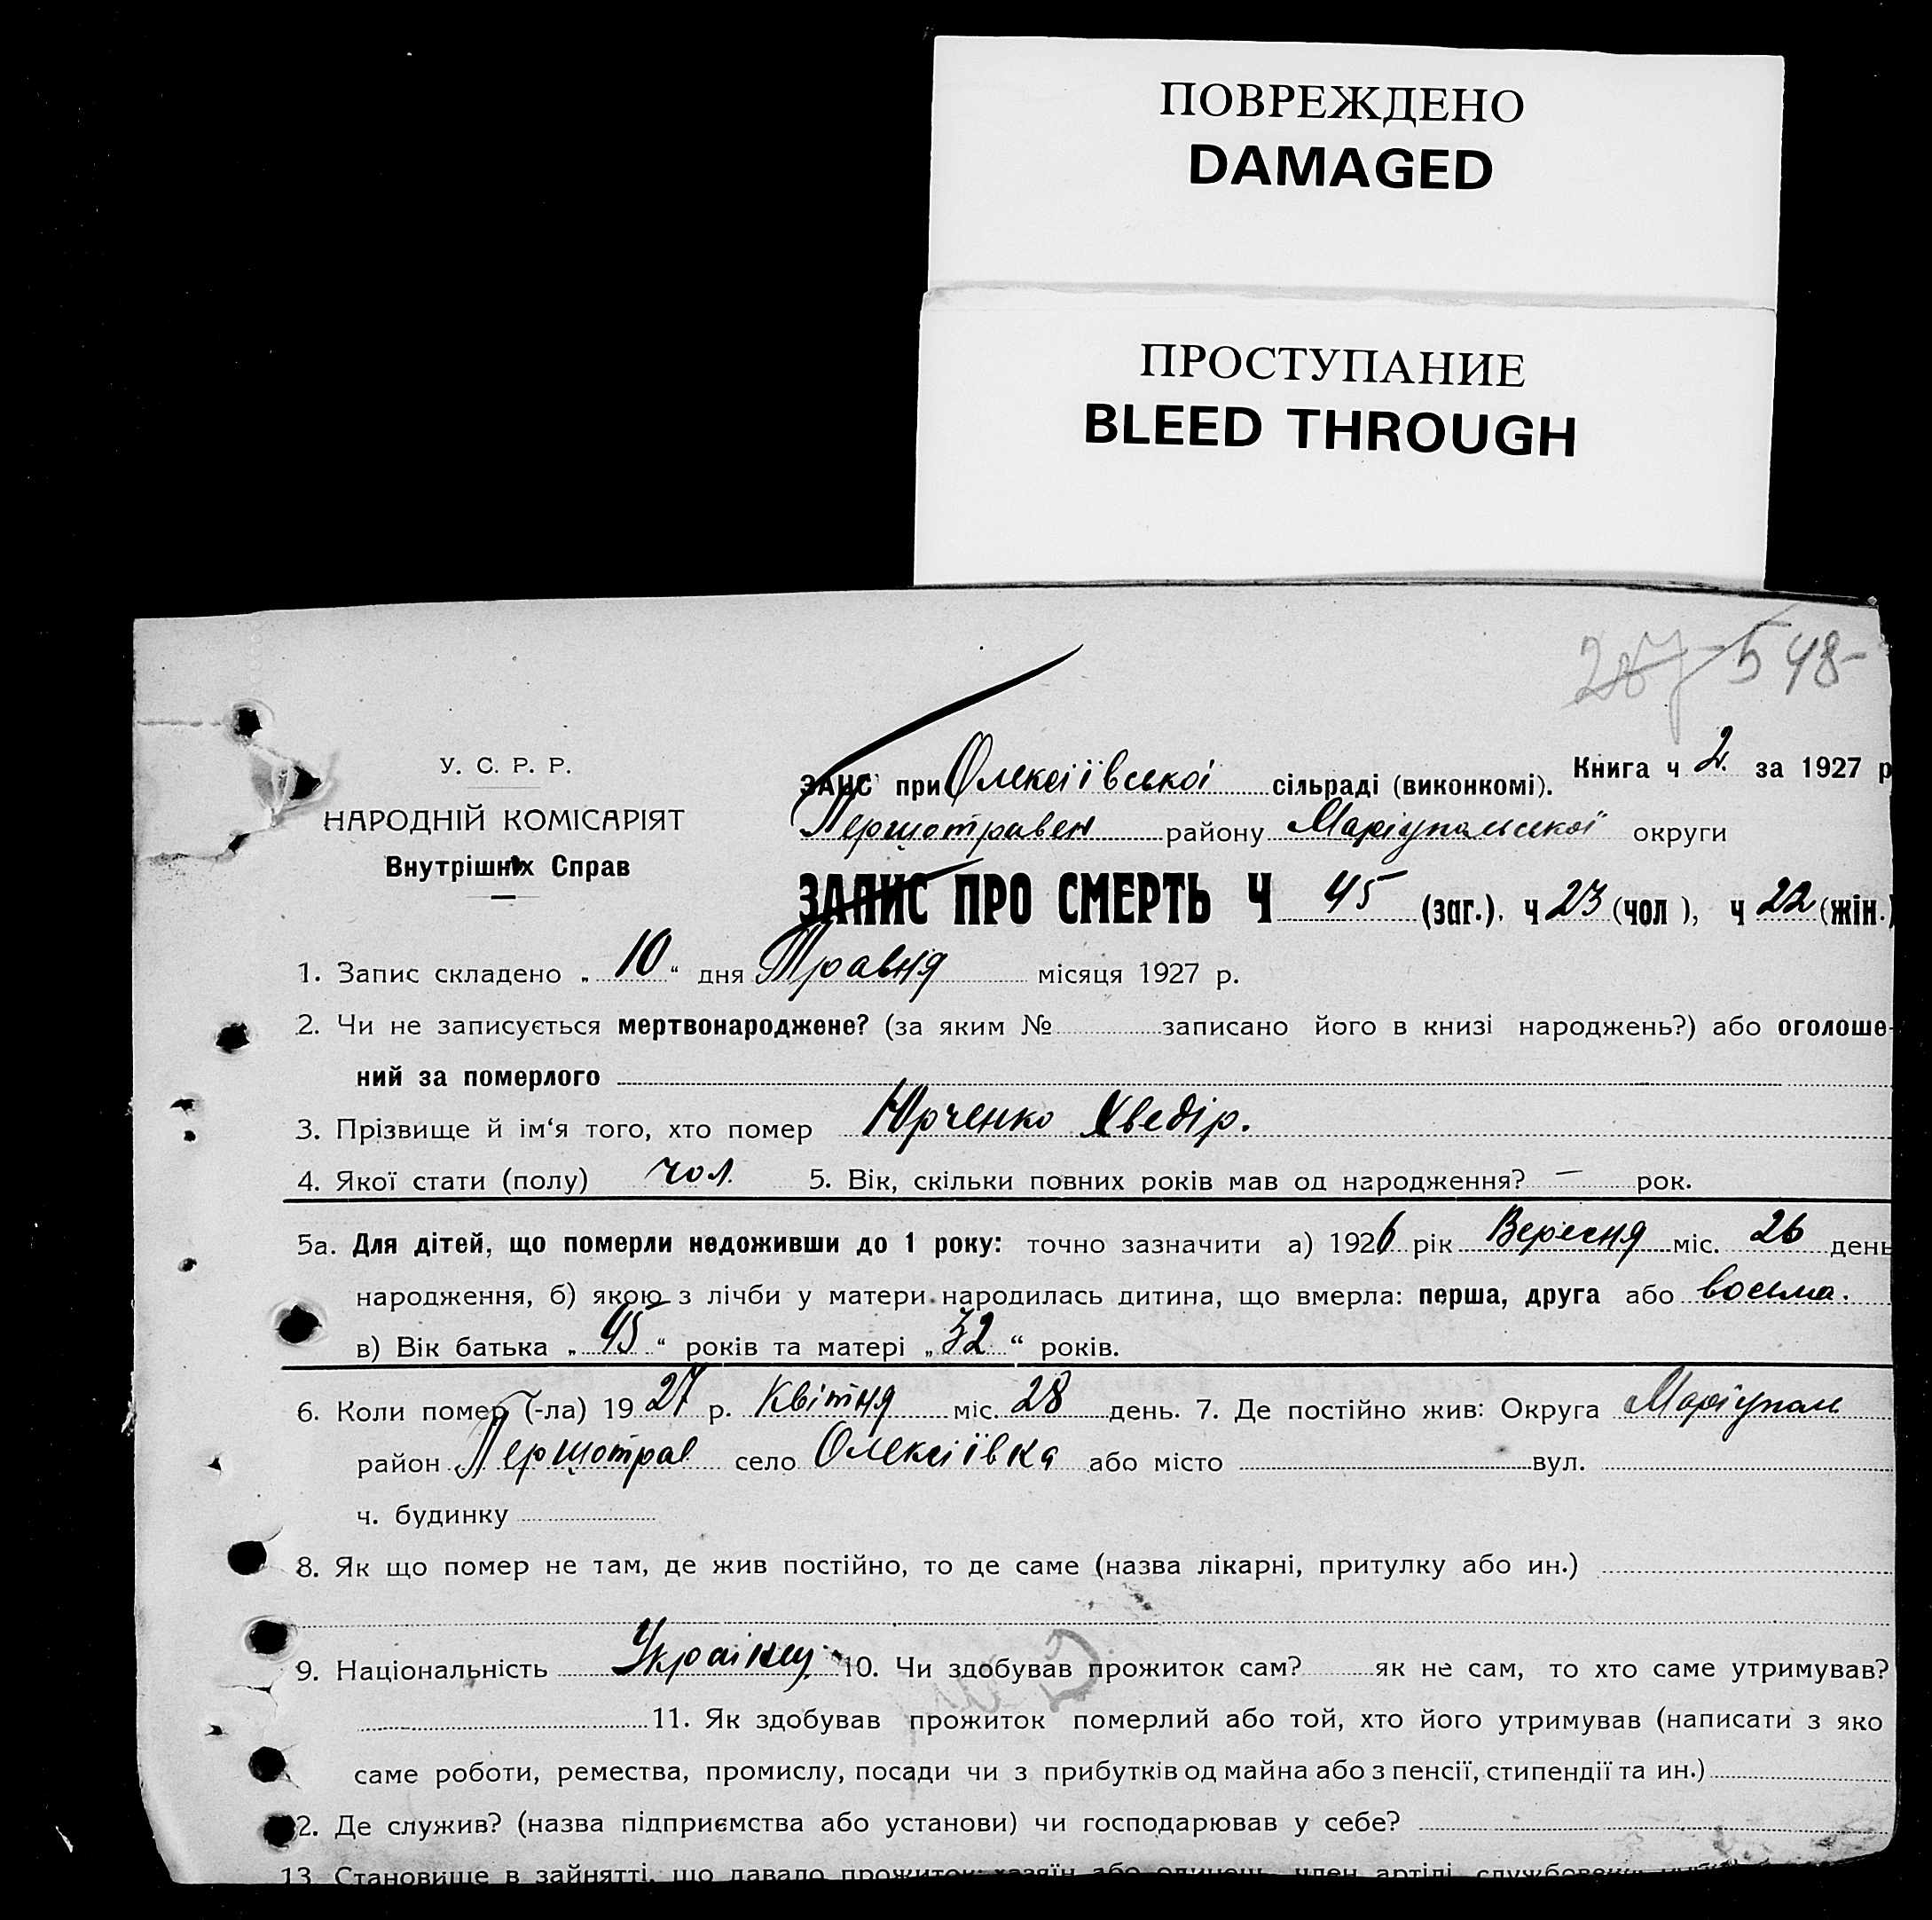 ПОВРЕЖДЕНО
DAMAGED
ПРОСТУПАНИЕ
BLEED THROUGH
287 548
У. С. Р. Р.
НАРОДНІЙ КОМІСАРІЯТ
Внутрішніх Справ
ЗАГС при Олексіївської сільраді (виконкомі). Книга ч 2. за 1927 р
Першотравен району Маріупольської округи
ЗАПИС ПРО СМЕРТЬ Ч 45 (заг.). ч 23 (чол ), ч 22 (жін.)
1. Запис складено „ 10 “ дня Травня місяця 1927 р.
2. Чи не записується мертвонароджене? (за яким № записано його в книзі народжень?) або оголоше-
ний за померлого
3. Прізвище й ім‘я того, хто помер Юрченко Хведір.
4. Якої стати (полу) чол. 5. Вік, скільки повних років мав од народження? — рок.
5а. Для дітей, що померли недоживши до 1 року: точно зазначити а) 1926 рік Вересня міс. 26 день
народження, б) якою з лічби у матери народилась дитина, що вмерла: перша, друга або восьма.
в) Вік батька „ 45 “ років та матері „ 32 “ років.
6. Коли помер (-ла) 19 27 р. Квітня міс. 28 день. 7. Де постійно жив: Округа Маріупол
район Першотрав село Олексіївка або місто вул.
ч. будинку
8. Як що помер не там, де жив постійно, то де саме (назва лікарні, притулку або ин.)
9. Національність Українец. 10. Чи здобував прожиток сам? як не сам, то хто саме утримував?
11. Як здобував прожиток померлий або той, хто його утримував (написати з яко
саме роботи, ремества, промислу, посади чи з прибутків од майна або з пенсії, стипендії та ин.)
2. Де служив? (назва підприємства або установи) чи господарював у себе?
13 Становище в зайнятті, що давало прожиток: хазяїн або одинець, член артілі, службовець